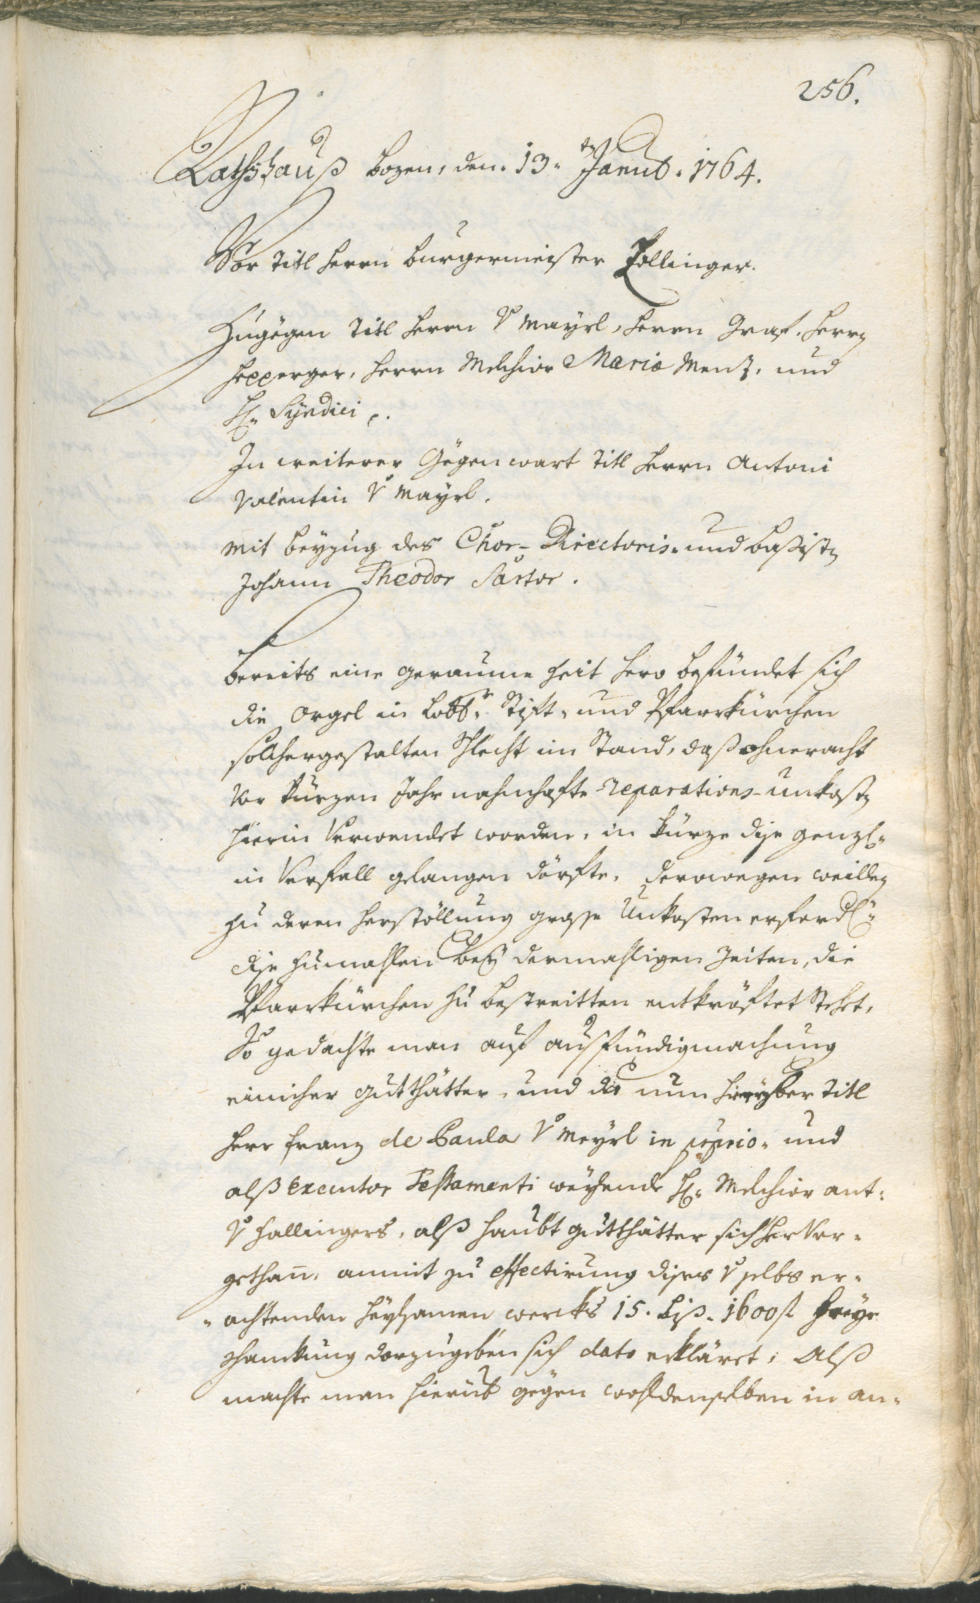 256.
Rathshauß Bozen, den 13.ten Januar. 1764.
Vor Titl Herrn Burgermeister Zollinger.
Zugegen Titl Herrn v Mayrl, Herrn Graf, Herrn
Hepperger, Herrn Melchior Maria Menz, und
H. Syndici.
In weiterer Gegenwart Titl Herrn Antoni
Valentin v Mayrl.
mit beyzug des Chor-Directoris und Bassisten
Johann Theodor Sartor.
Bereits eine geraume Zeit hero befindet sich
die Orgel in Stift- und Pfarrkürchen
solchergestalten schlecht im Stand, daß ohneracht
vor kurzen Jahr nahmhafte reparations-unkosten
hierin verwendet worden, in kürze dise genzl:
in verfall gelangen dörfte, derowegen weillen
zu deren herstöllung grosse Unkosten erforderl:
dise zumahlen bey dermahligen Zeiten, die
Pfarrkürchen zu bestreitten entkröftet stehet,
So gedachte man auf ausfündigmachung
einicher gutthätter, und da nun hieryber Titl
herr Franz de Paula v Mayrl in proprio, und
alß Executor Testamenti weylende H. Melchior Ant:
v Hallingers, alß haubt gutthätter sich hervor-
gethan, anmit zu effectirung dises selbs er-
achtenden heylsamen wercks 15. biß 1600 f
schanckung darzugeben sich dato erkläret; Alß
machte man hierüb gegen wohldenselben in an-